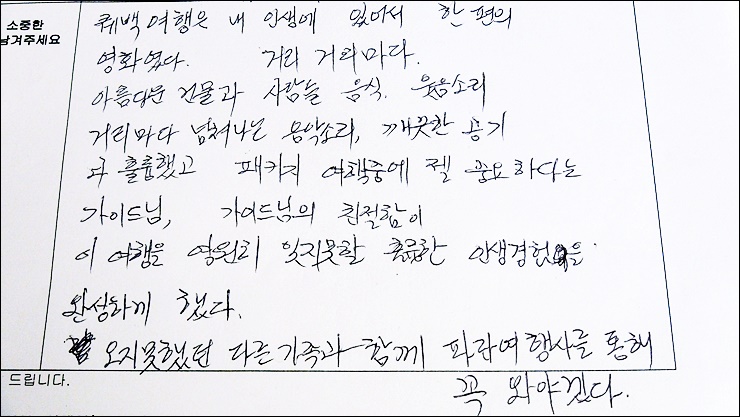 소중한
남겨주세요
퀘백여행은 내 인생에 있어서 한 편의
영화였다. 거리 거리마다.
아름다운 건물과 사람들 음식. 웃음소리
거리마다 넘쳐나는 음악소리, 깨끗한 공기
다 훌륭했고 패키지 여행중에 젤 중요하다는
가이드님, 가이드님의 친절함이
이 여행을 영원히 잊지못할 훌륭한 인생경험을
완성하게 했다.
오지못했던 다른가족과 함께 파란여행사를 통해
꼭 와야겠다.
드립니다.